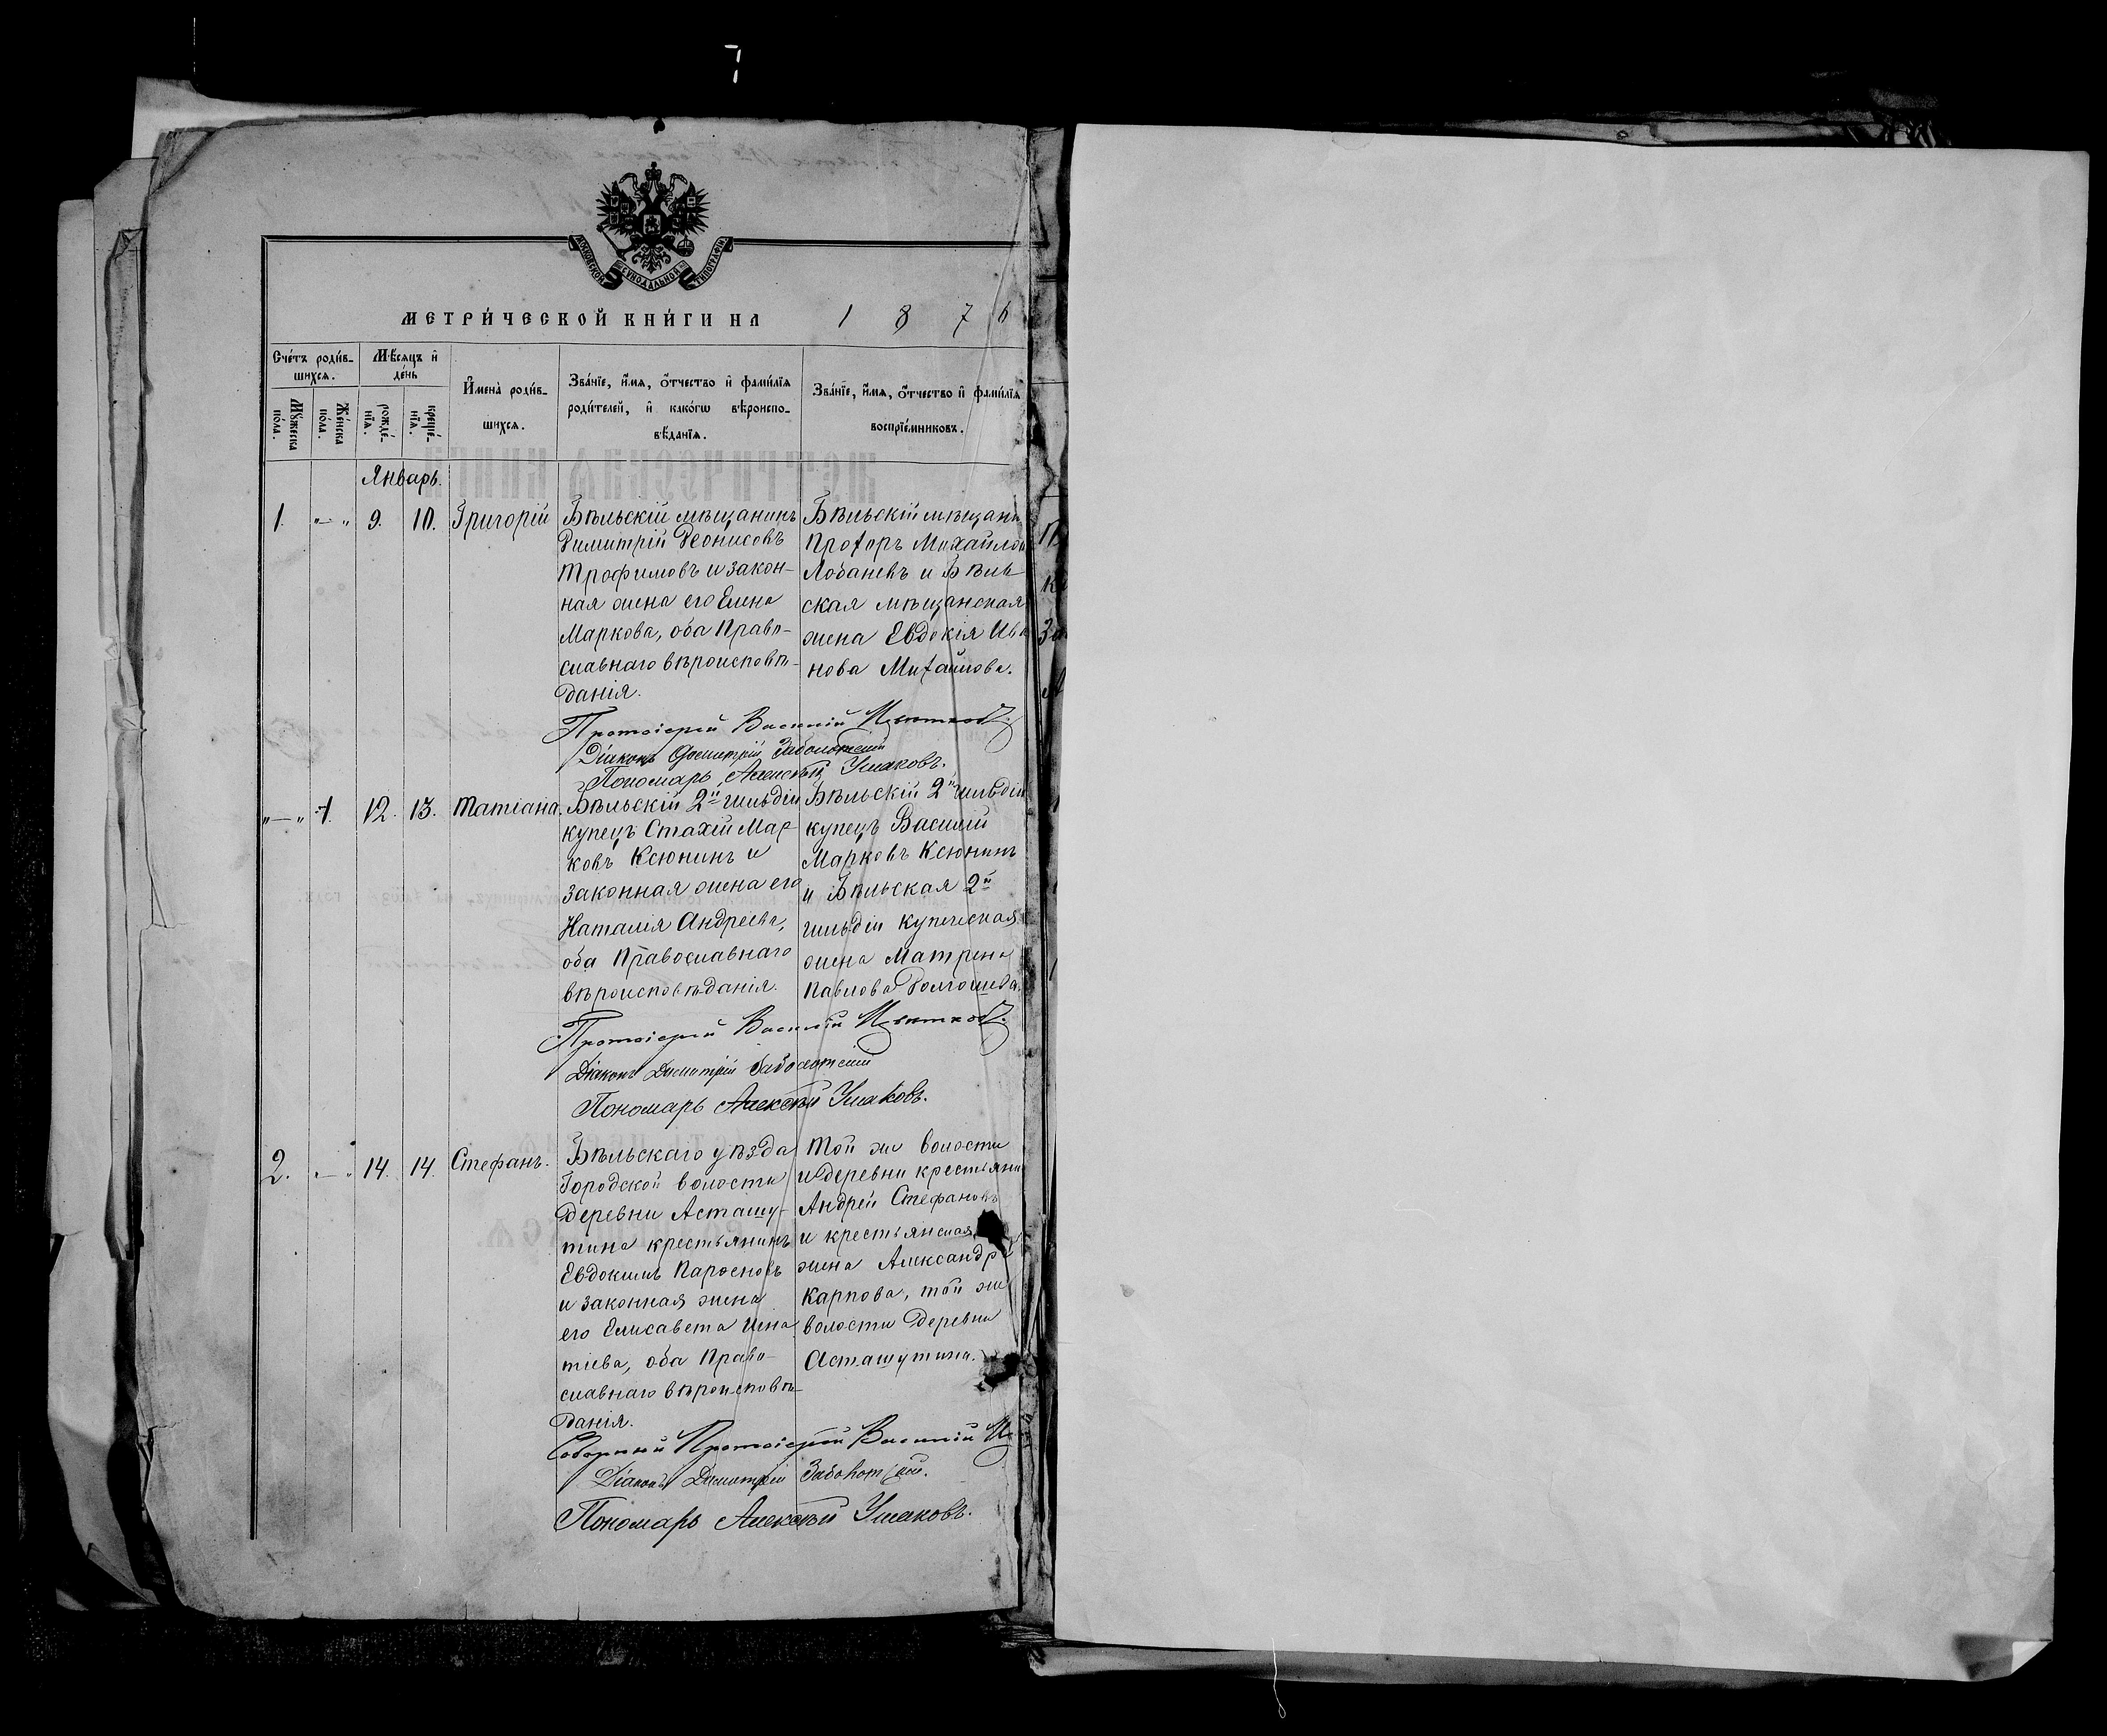 7
МОСКОВСКОЙ СѴНОДАЛЬНОЙ ТИПОГРАФІИ
МЕТРИ́ЧЕСКОЙ КНИ́ГИ НА 1876
Сче́тъ роди́в-
шихся.
Мѣ́сяцъ и҆
де́нь
И҆мена̀ роди́в-
шихся.
Зва́нїе, и҆́мя, ѻ҆́тчество и҆ фами́лїя
роди́телей, и҆ како́гѡ вѣроиспо-
вѣ́данїя.
Зва́нїе, и҆́мя, ѻ҆́тчество и҆ фами́лїя
воспрїе́мниковъ.
Мꙋ́жеска
по́ла.
Же́нска
по́ла.
рожде́-
нїя.
креще́-
нїя.
Январь.
1. "—" 9. 10. Григорій
Бѣльскій мѣщанинъ
Димитрій Деонисовъ
Трофимовъ и закон-
ная жена его Елена
Маркова, оба Право-
славнаго вѣроисповѣ-
данія.
Бѣльскій мѣщани
Прохоръ Михайлов
Лобаневъ и Бѣль
ская мѣщанская
жена Евдокія Ива
нова Михайлова.
Протоіерей Василій Цвѣтковъ.
Діаконъ Димитрій Заболотскій
Пономарь Алексѣй Ушаковъ.
"—" 1. 12. 13. Татіана.
Бѣльскій 2й гильдіи
купецъ Стахій Мар-
ковъ Ксюнинъ и
законная жена его
Наталія Андреева,
оба Православнаго
вѣроисповѣданія.
Бѣльскій 2й гильдіи
купецъ Василій
Марковъ Ксюнинъ
и Бѣльская 2й
гильдіи купеческая
жена Матрена
Павлова Долгошева.
Протоіерей Василій Цвѣтковъ.
Діаконъ Димитрій Заболотскій
Пономарь Алексѣй Ушаковъ.
2. "—" 14. 14. Стефанъ.
Бѣльскаго уѣзда
Городской волости
деревни Асташу-
тина крестьянинъ
Евдокимъ
и законная жена
его Елисавета Игна
тіева, оба Право-
славнаго вѣроисповѣ-
данія.
Той же волости
и деревни крестьяни
Андрей Стефановъ
и крестьянская
жена Александра
Карпова, той же
волости деревни
Асташутина.
Соборный Протоіерей Василій Ц
Діаконъ Димитрій Заболотскій.
Пономарь Алексѣй Ушаковъ.